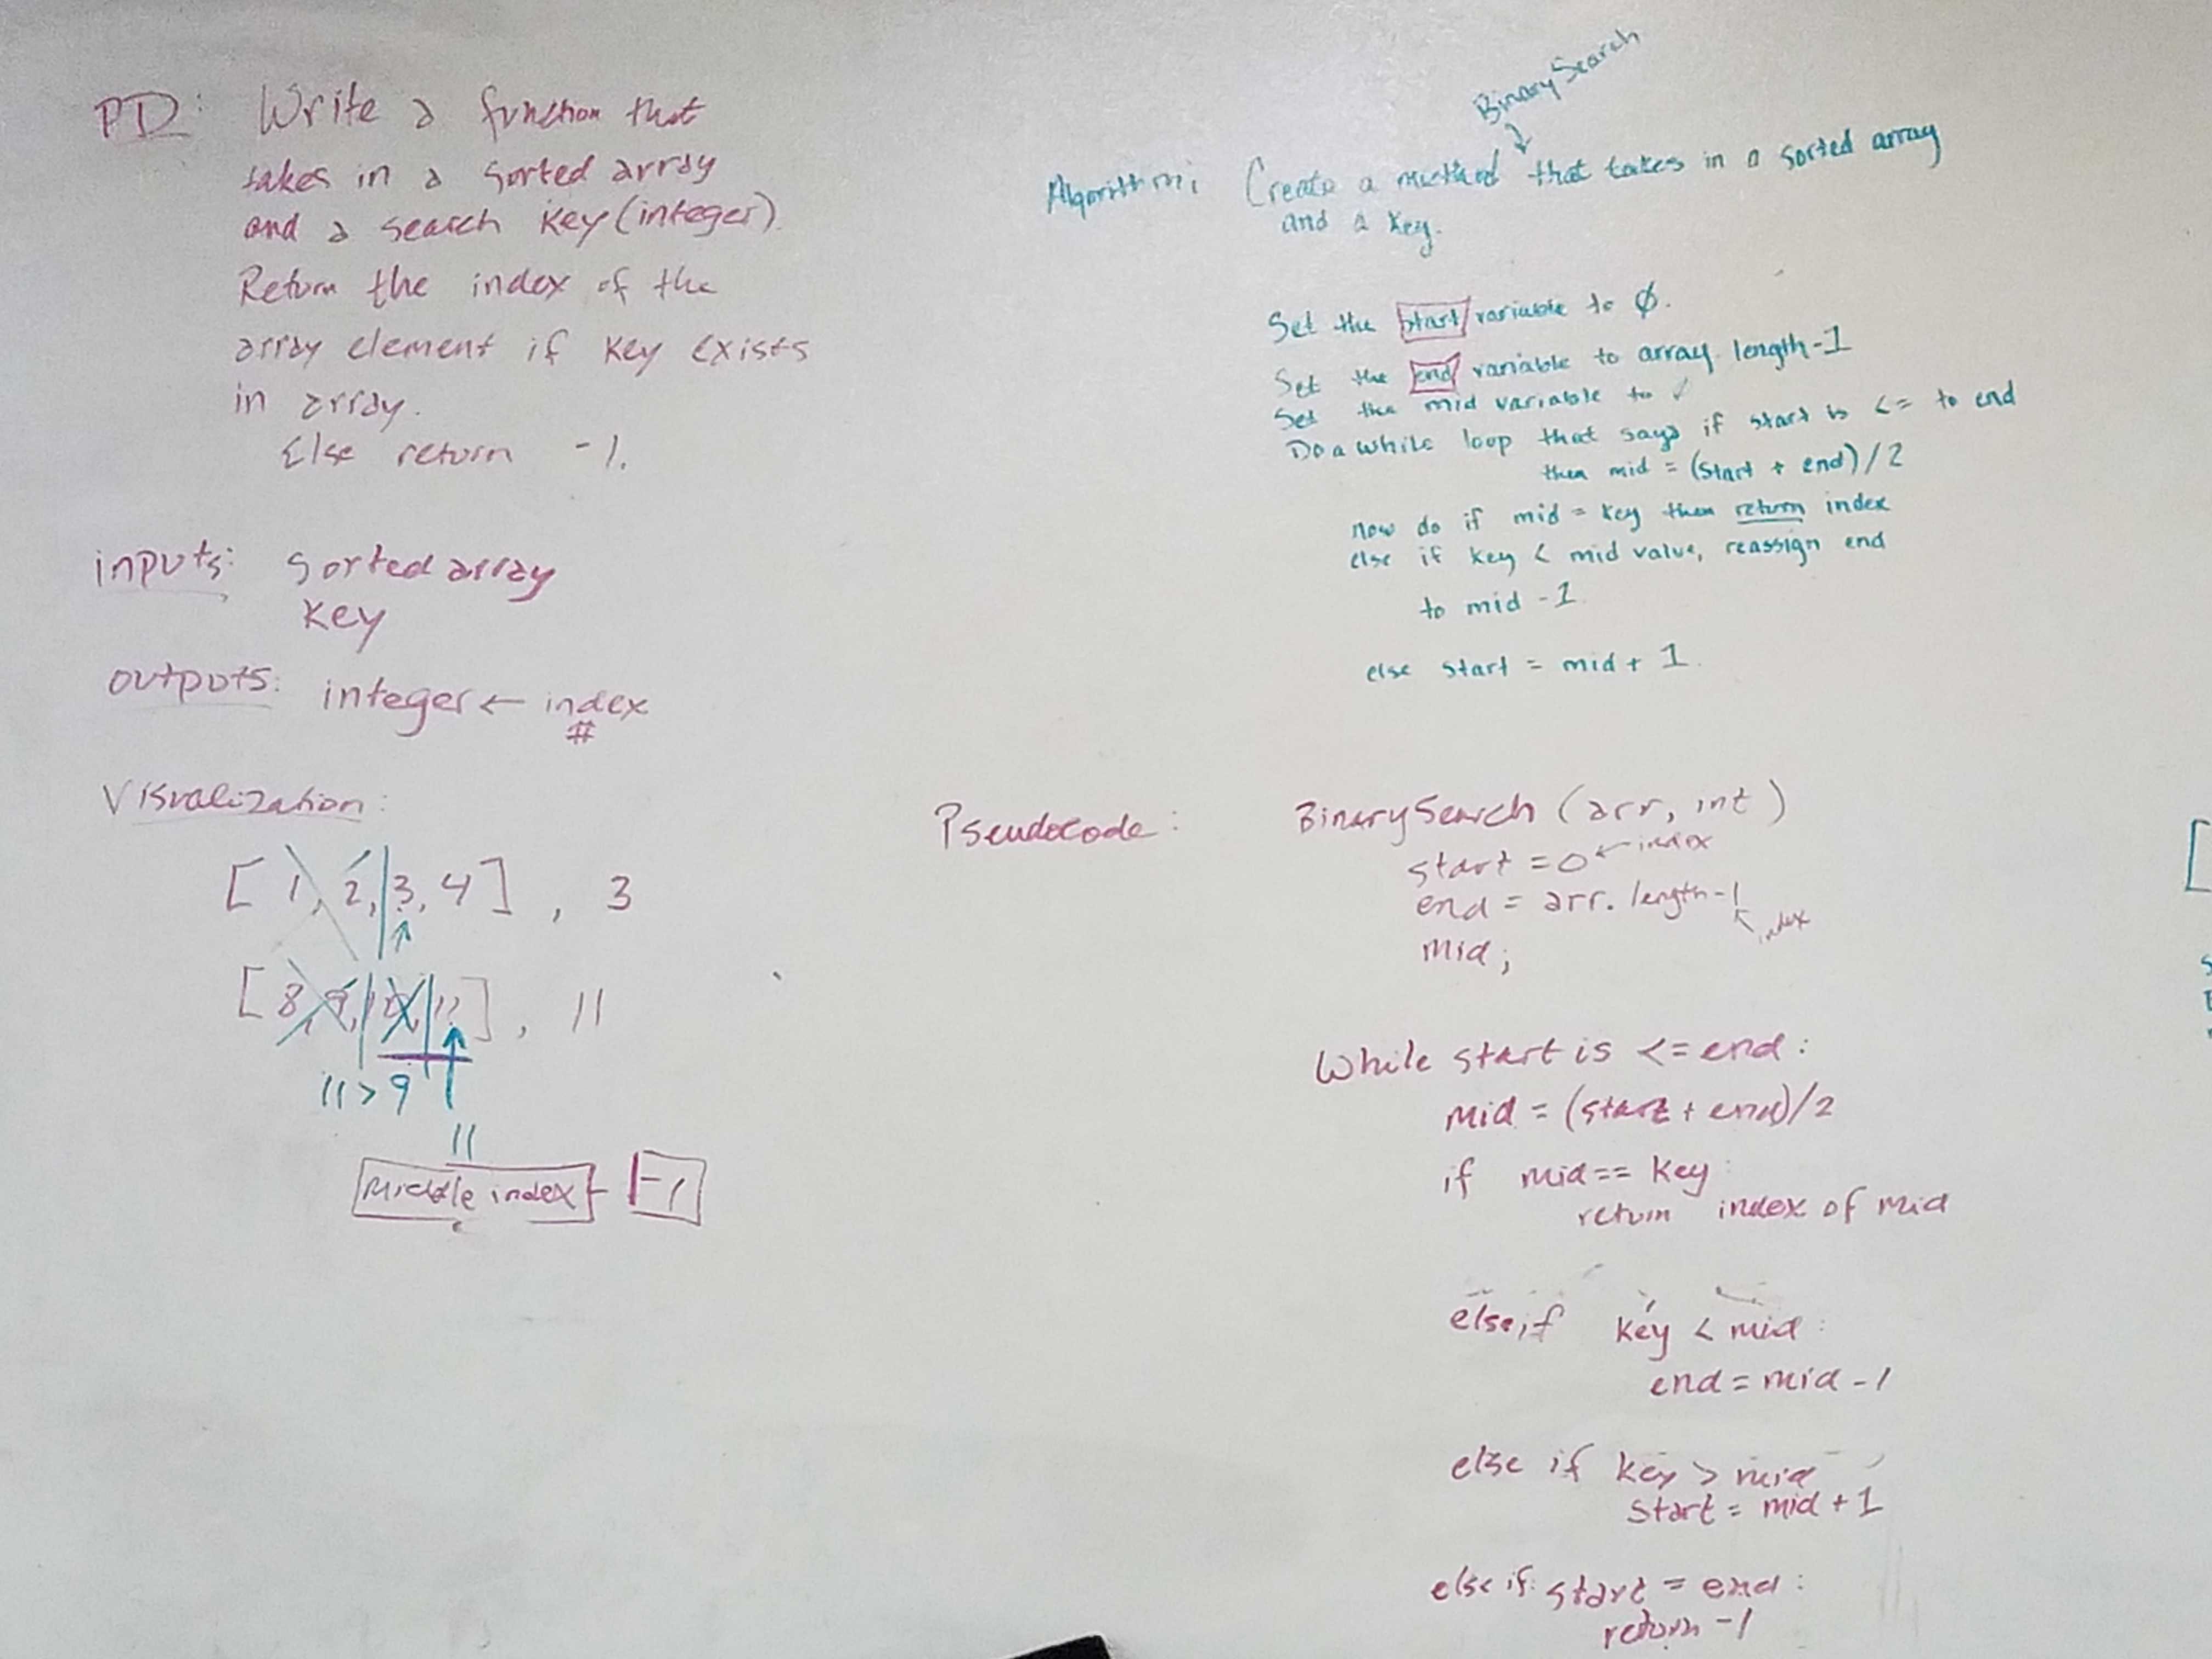 PD: Write a function that
takes in a sorted array
and a search key (integer).
Return the index of the
array element if key exists
in array.
Else return -1.
inputs: sorted array
key
outputs: integer ← index
#
Visualization:
[ 1, 2, 3, 4 ] , 3
↑
[ 8, 9, 10, 11 ] , 11
11 > 9
11
Middle index - 1
BinarySearch
↓
Algorithm: Create a method that takes in a sorted array
and a key.
Set the start variable to Ø.
Set the end variable to array length-1
Set the mid variable to
Do a while loop that says if start is <= to end
then mid = (start + end)/2
now do if mid = key then return index
else if key < mid value, reassign end
to mid -1
else start = mid + 1.
Pseudocode: BinarySearch (arr, int)
start = 0 ← index
end = arr. length-1
index
mid;
While start is <= end:
mid = (start + end)/2
if mid == key:
return index of mid
else if key < mid:
end = mid - 1
else if key > mid
start = mid + 1
else if: start = end:
return -1
[